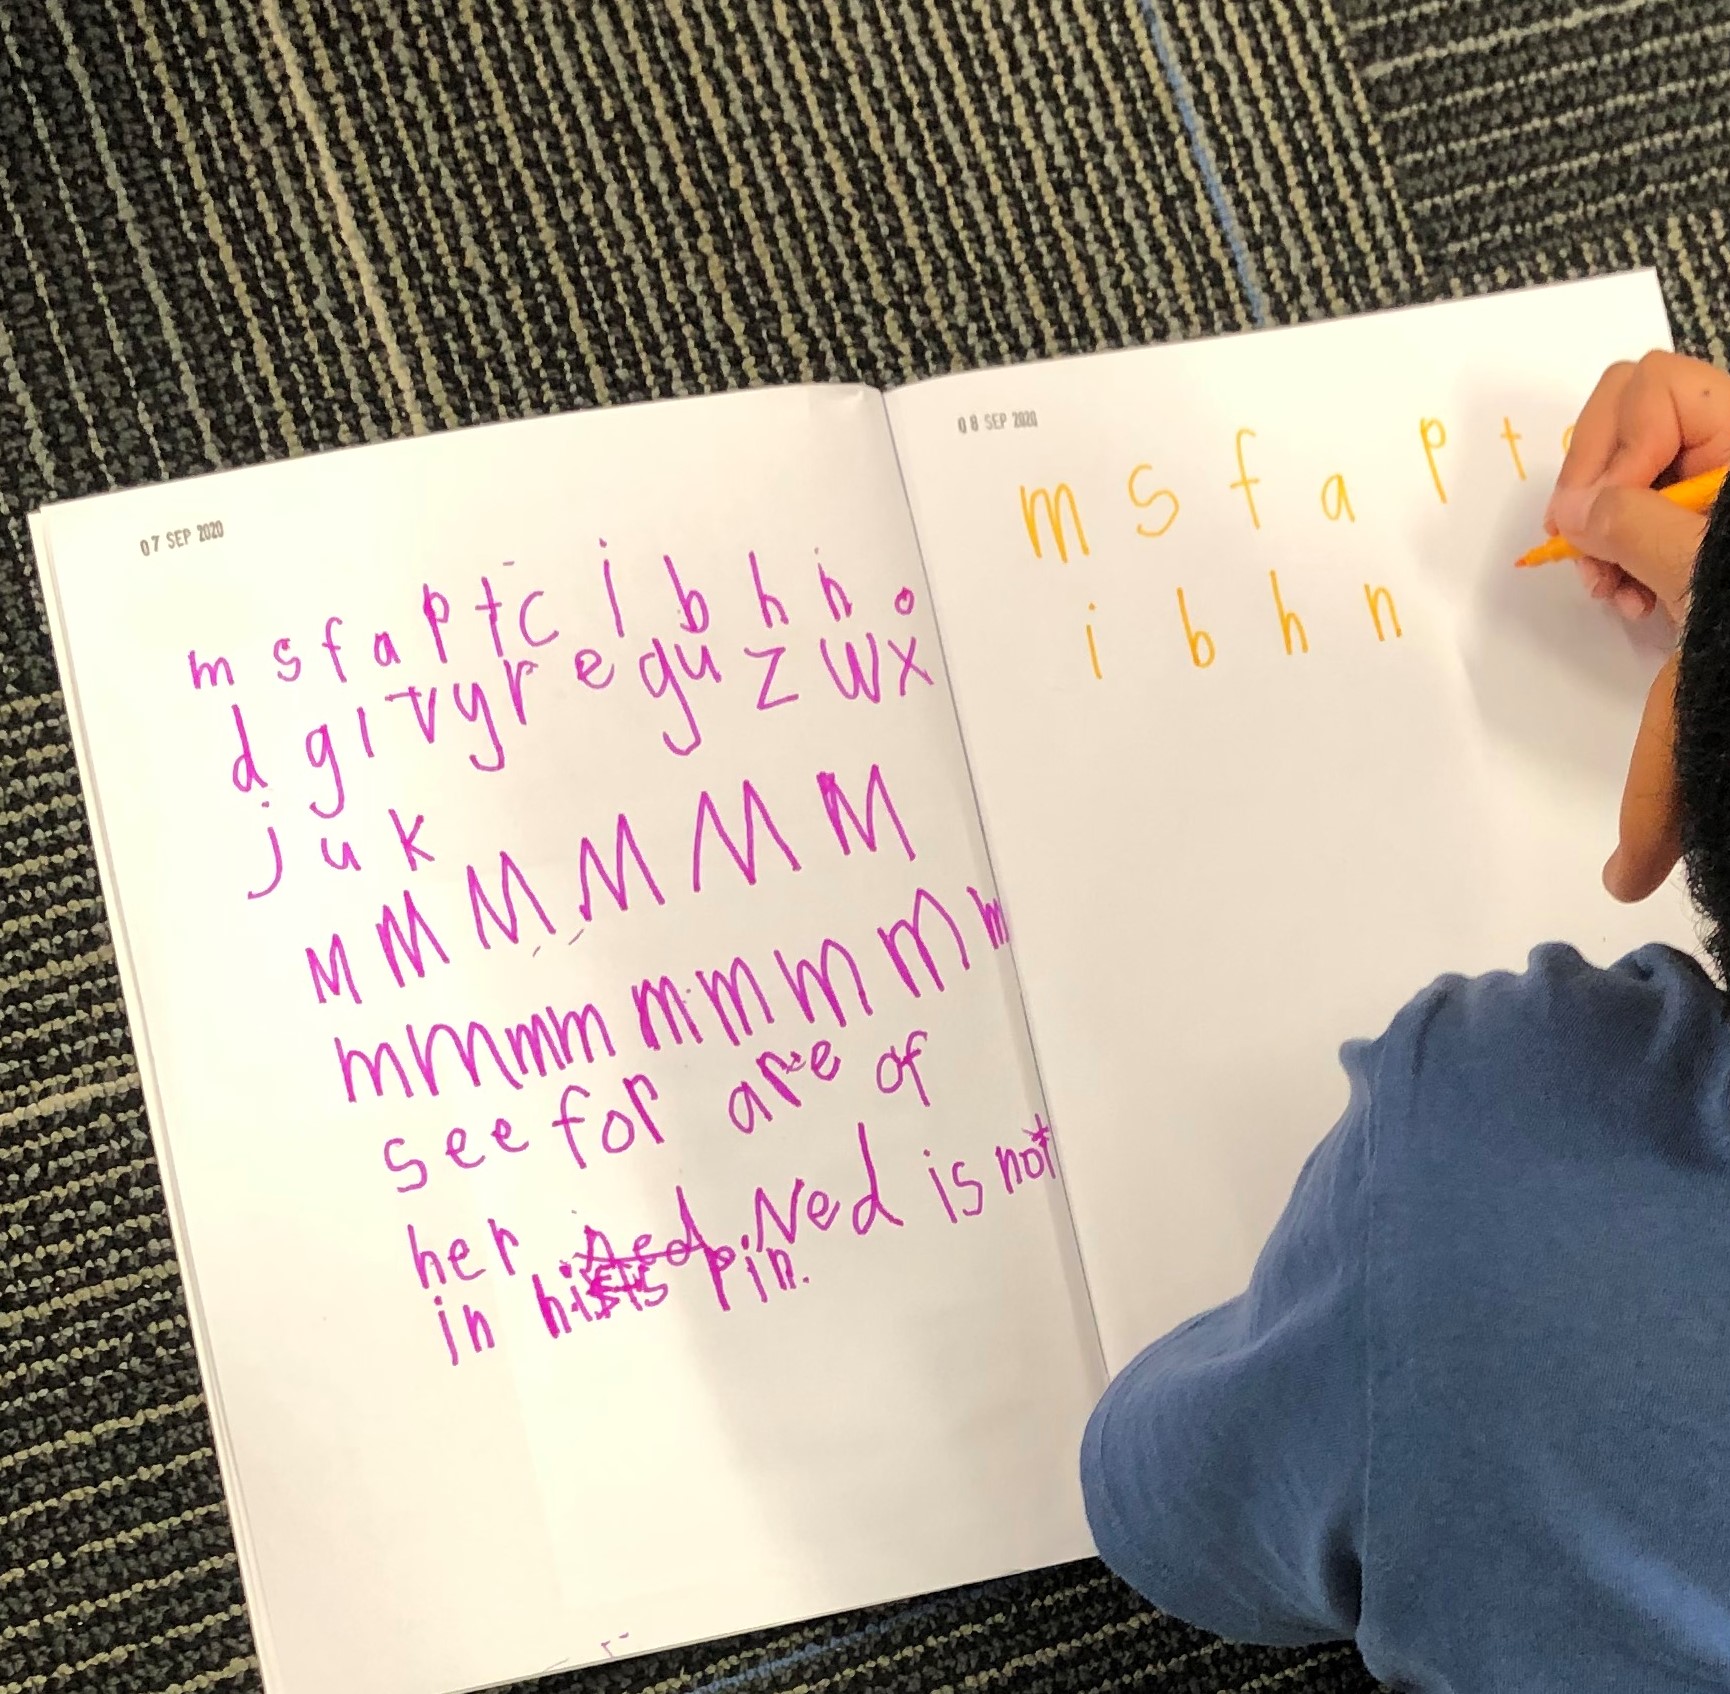 07 SEP 2020
m s f a p t c i b h n o
d g l v y r e qu z w x
j u k
M M M M M M
m m m m m m m m m
see for are of
her Ned Ned is not
in his pin.
08 SEP 2020
m s f a p t
i b h n